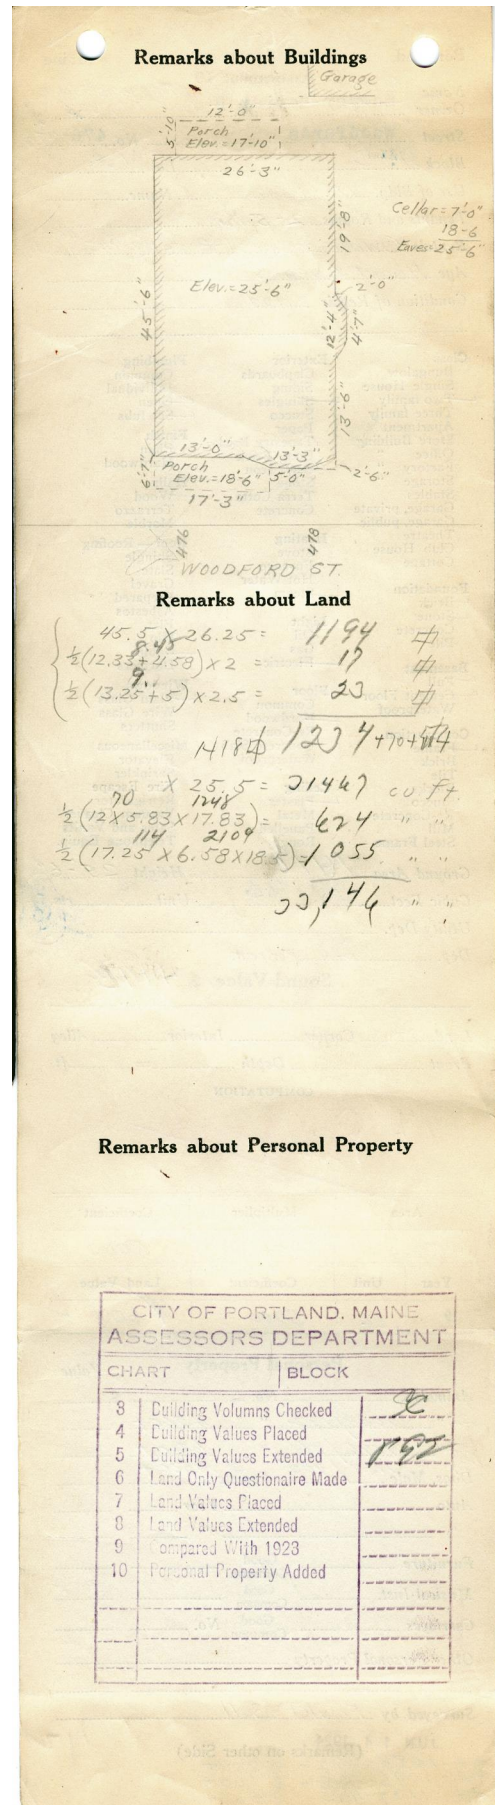 Remarks about Buildings
Garage
12'-0"
5'-10"
Porch
Elev.=17'-10"
26'-3"
19'-8"
Cellar=7'-0"
18-6
Eaves=25'-6"
Elev.=25'-6"
2'-0"
45'-6"
12'-4"
4'-7"
13'-6"
13'-0"
13'-3"
6'-7"
Porch
Elev.=18'-6"
5'-0"
2'-6"
17'-3"
476
478
WOODFORD ST.
Remarks about Land
45.5 X 26.25 = 1194
8.45
½(12.33+4.58) X 2 = 17
9..
½(13.25+5) X 2.5 = 23
1418 1234 +70+114
X 25.5 = 31467 cu ft.
70 1248
½(12 X 5.83 X 17.83) = 624 " "
114 2109
½(17.25 X 6.58 X 18.5) = 1055 " "
33,146 " "
Remarks about Personal Property
CITY OF PORTLAND, MAINE
ASSESSORS DEPARTMENT
CHART BLOCK
3 Building Volumns Checked
4 Building Values Placed
5 Building Values Extended
6 Land Only Questionaire Made
7 Land Values Placed
8 Land Values Extended
9 Compared With 1923
10 Personal Property Added